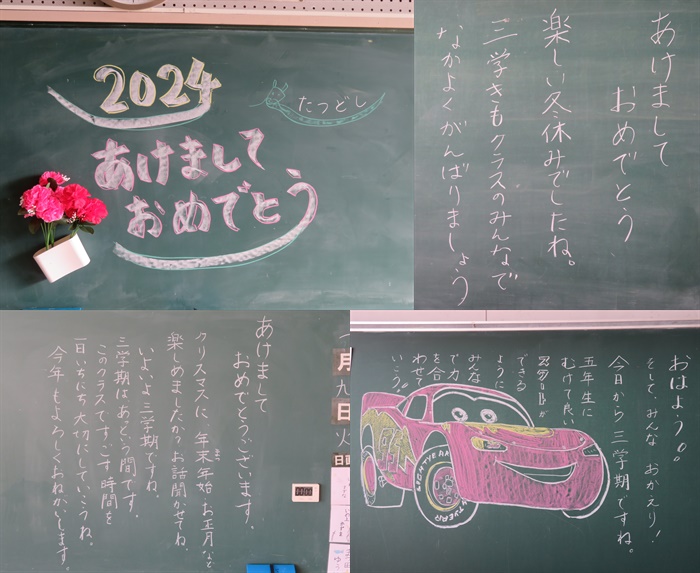 2024
たつどし
あけまして
おめでとう
あけまして
おめでとう
楽しい冬休みでしたね。
三学きもクラスのみんなで
なかよくがんばりましょう
あけまして
おめでとうございます。
クリスマスに、年末年始、お正月など
楽しめましたか？お話聞かせてね。
いよいよ三学期ですね。
三学期はあという間です。
このクラスですごす時間を
一日いちにち大切にしていこうね。
今年もよろしくおねがいします。
月
九
日
火
日曜
おはよう。
そして、みんな おかえり！
今日から三学期ですね。
五年生に
むけて良い
できる
ように
みんな
で力
を合
わせて
いこう！
95